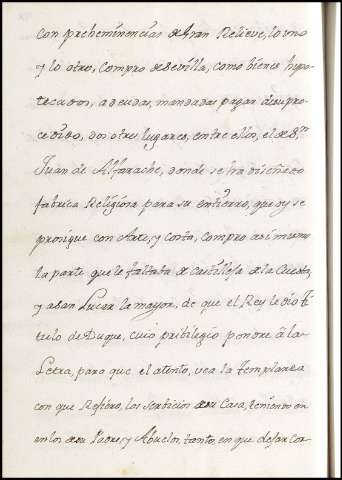 con preheminencias de Gran Relieve, lo vno
y lo otro, Compro de Sevilla, como bienes hypo-
tecados, a deudas, mandadas pagar de su pro-
cedido, dos o tres lugares, entre ellos, el de Sn
Juan de Alfarache, donde se ha diseñado
fabrica Religiosa para su entierro, que oy se
prosigue con Arte, y Costa, Compro asimismo
la parte que le faltaba de Castilleja de la Cuesta,
y a San Lucar la mayor, de que el Rey le dio Ti-
tulo de Duque, cuio pribilegio pondre â la
Letra, para que el atento, vea la Templanza
con que Refiero, los Serbicios de su Casa, teniendo en
en los de sus Padres, y Abuelos, tanto, en que dejar cor-